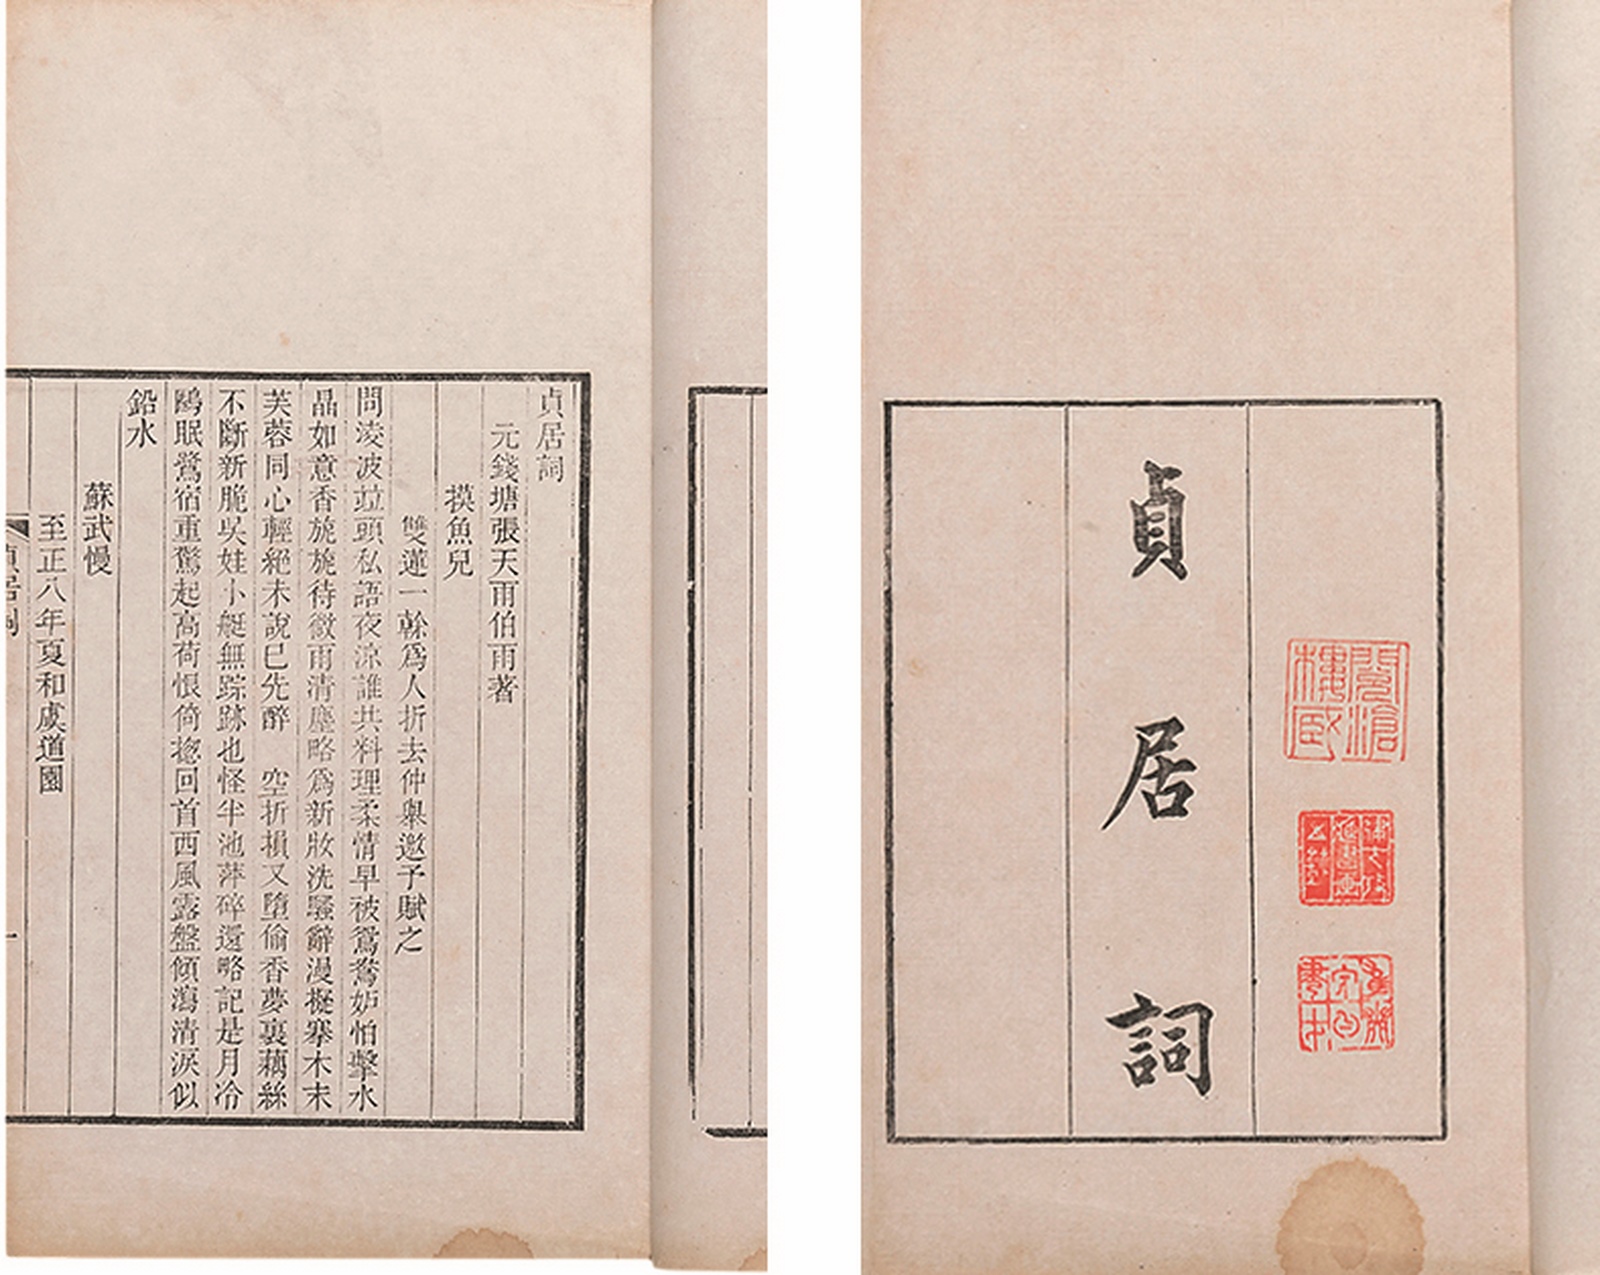 貞居詞
元錢塘張天雨伯雨著
摸魚兒
雙蓮一榦爲人折去仲舉邀予賦之
問淩波竝頭私語夜涼誰共料理柔情早被鴛鴦妒怕擊水
晶如意香旎旎待微雨清塵略爲新妝洗騷辭漫擬搴木末
芙蓉同心輕絕未說已先醉　空折損又墮偷香夢裏藕絲
不斷新脆吳娃小艇無踪跡也怪半池萍碎還略記是月冷
鷗眠鷺宿重驚起高荷恨倚揔回首西風露盤傾瀉清淚似
鉛水
蘇武慢
至正八年夏和虞道園
貞居詞
一
貞居詞